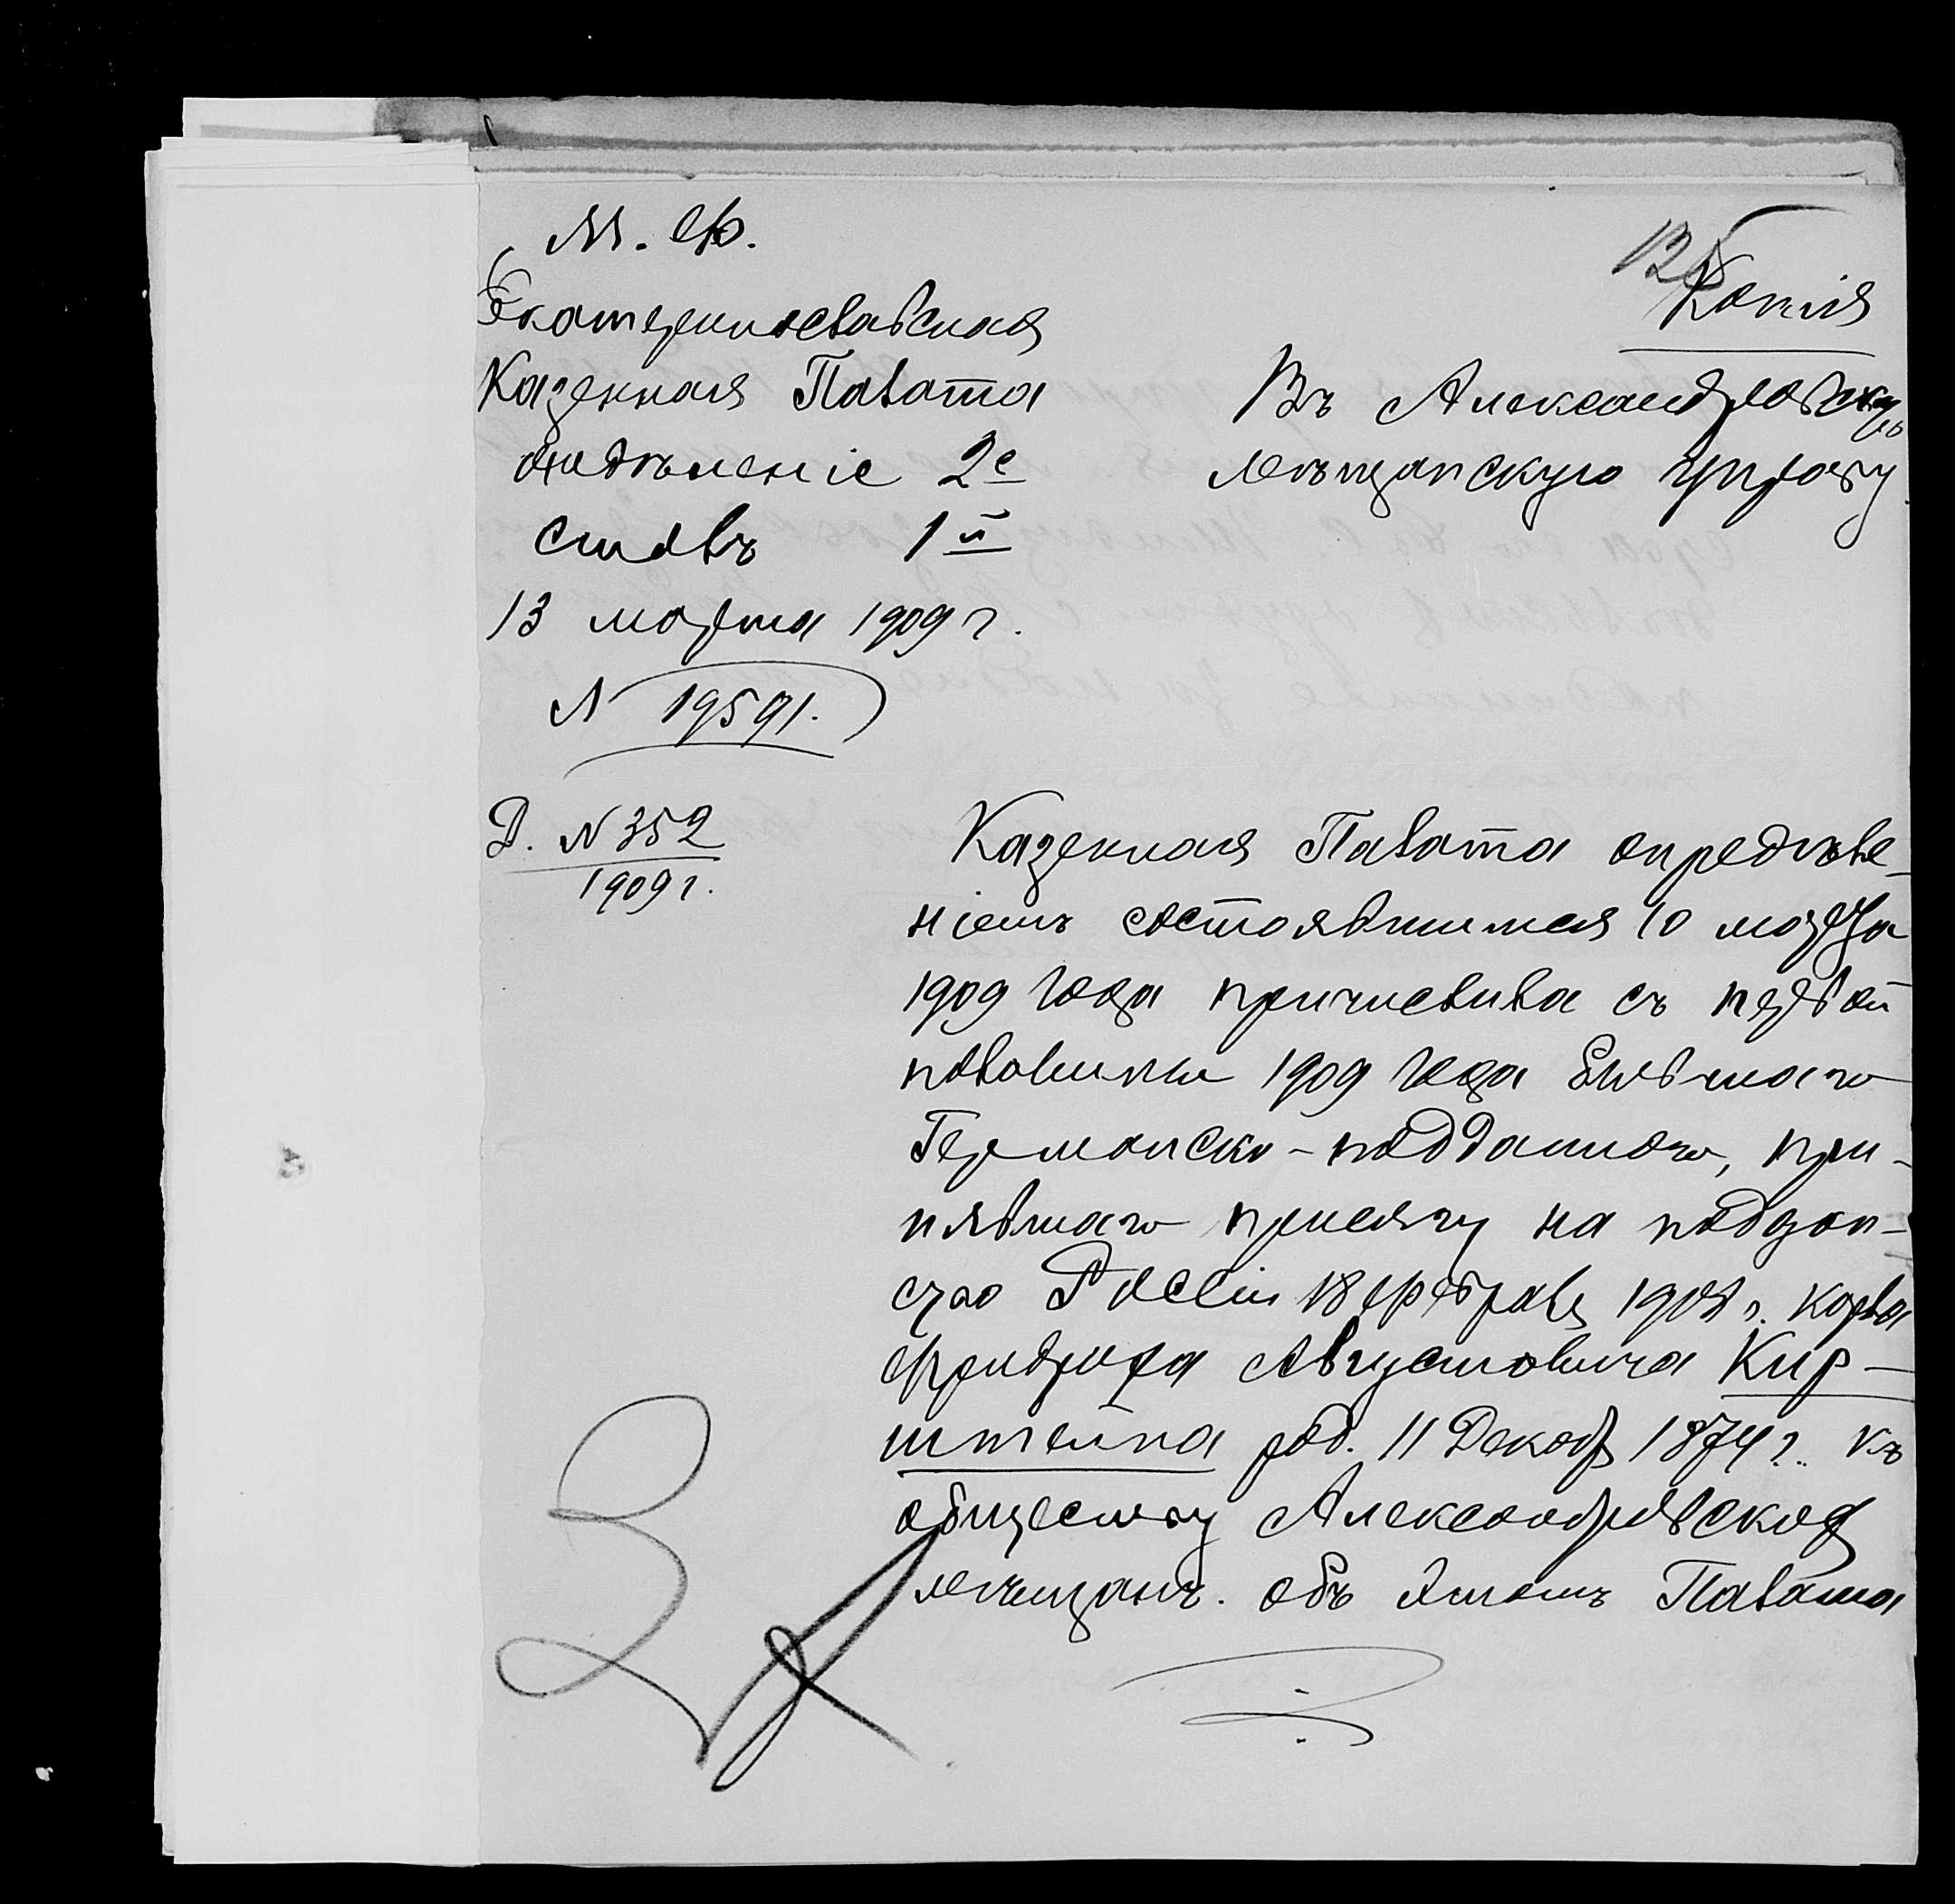 М. Ф.
Екатеринославская
Казенная Палата
Отдѣленіе 2е
столъ 1й
13 марта 1909 г.
N 19591.
Д. N 352
1909 г.
Копія
Въ Александровскую
мѣщанскую управу
Казенная Палата опредѣле-
ніемъ состоявшимся 10 марта
1909 года причислила съ первой
половины 1909 года бывшаго
Германско-подданного, при-
нявшаго присягу на поддан-
ство Россіи 18 февраля г. Карла
Фридриха Августовича Кир-
штейна род. 11 Декаб 1874 г. къ
обществу Александровских
мѣщанъ. Объ этомъ Палата